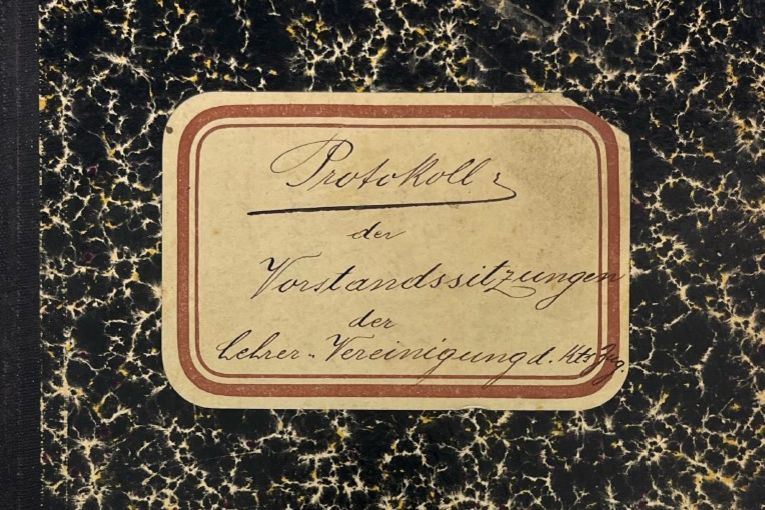 Protokoll
der
Vorstandssitzungen
der
Lehrer-Vereinigung d. Kts Zug.